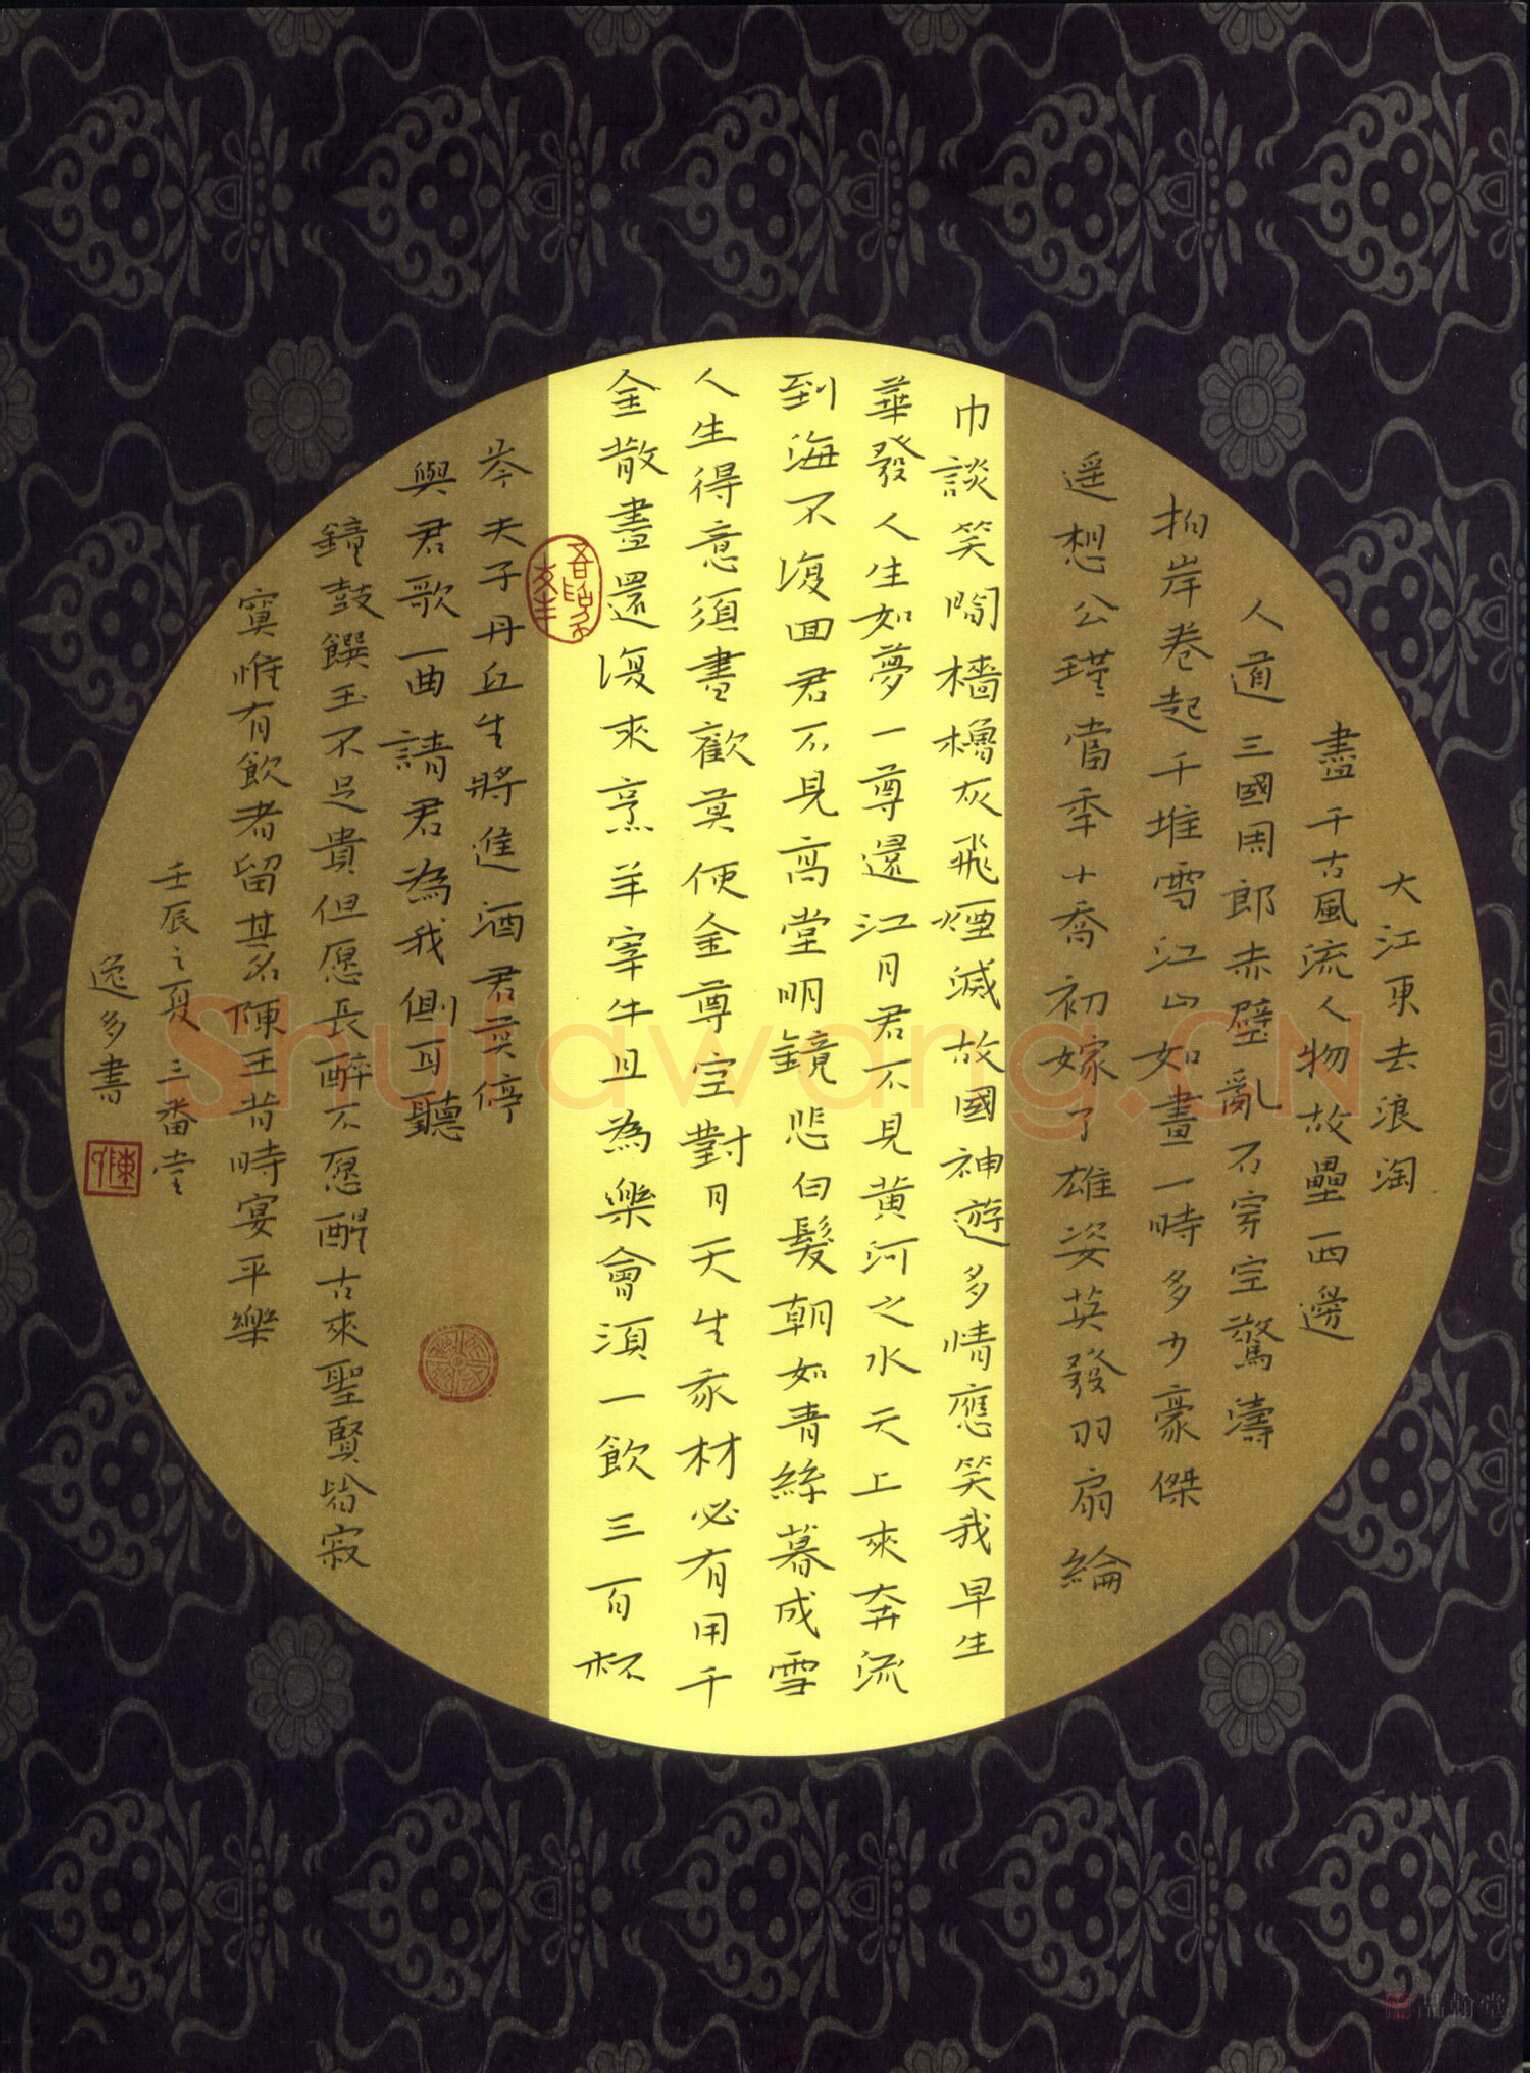 大江東去浪淘
盡千古風流人物故壘西邊
人道三國周郎赤壁亂石穿空驚濤
拍岸卷起千堆雪江山如畫一時多少豪傑
遥想公瑾當年小喬初嫁了雄姿英發羽扇綸
巾談笑間檣櫓灰飛煙滅故國神遊多情應笑我早生
華發人生如夢一尊還江月君不見黃河之水天上來奔流
到海不復回君不見高堂明鏡悲白髮朝如青絲暮成雪
人生得意須盡歡莫使金尊空對月天生我材必有用千
金散盡還復來烹羊宰牛且為樂會須一飲三百杯
岑夫子丹丘生將進酒君莫停
與君歌一曲請君為我側耳聽
鐘鼓饌玉不足貴但愿長醉不愿醒古來聖賢皆寂
寞惟有飲者留其名陳王昔時宴平樂
壬辰之夏三番堂
逸多書
Shufawang.CN
品翰堂